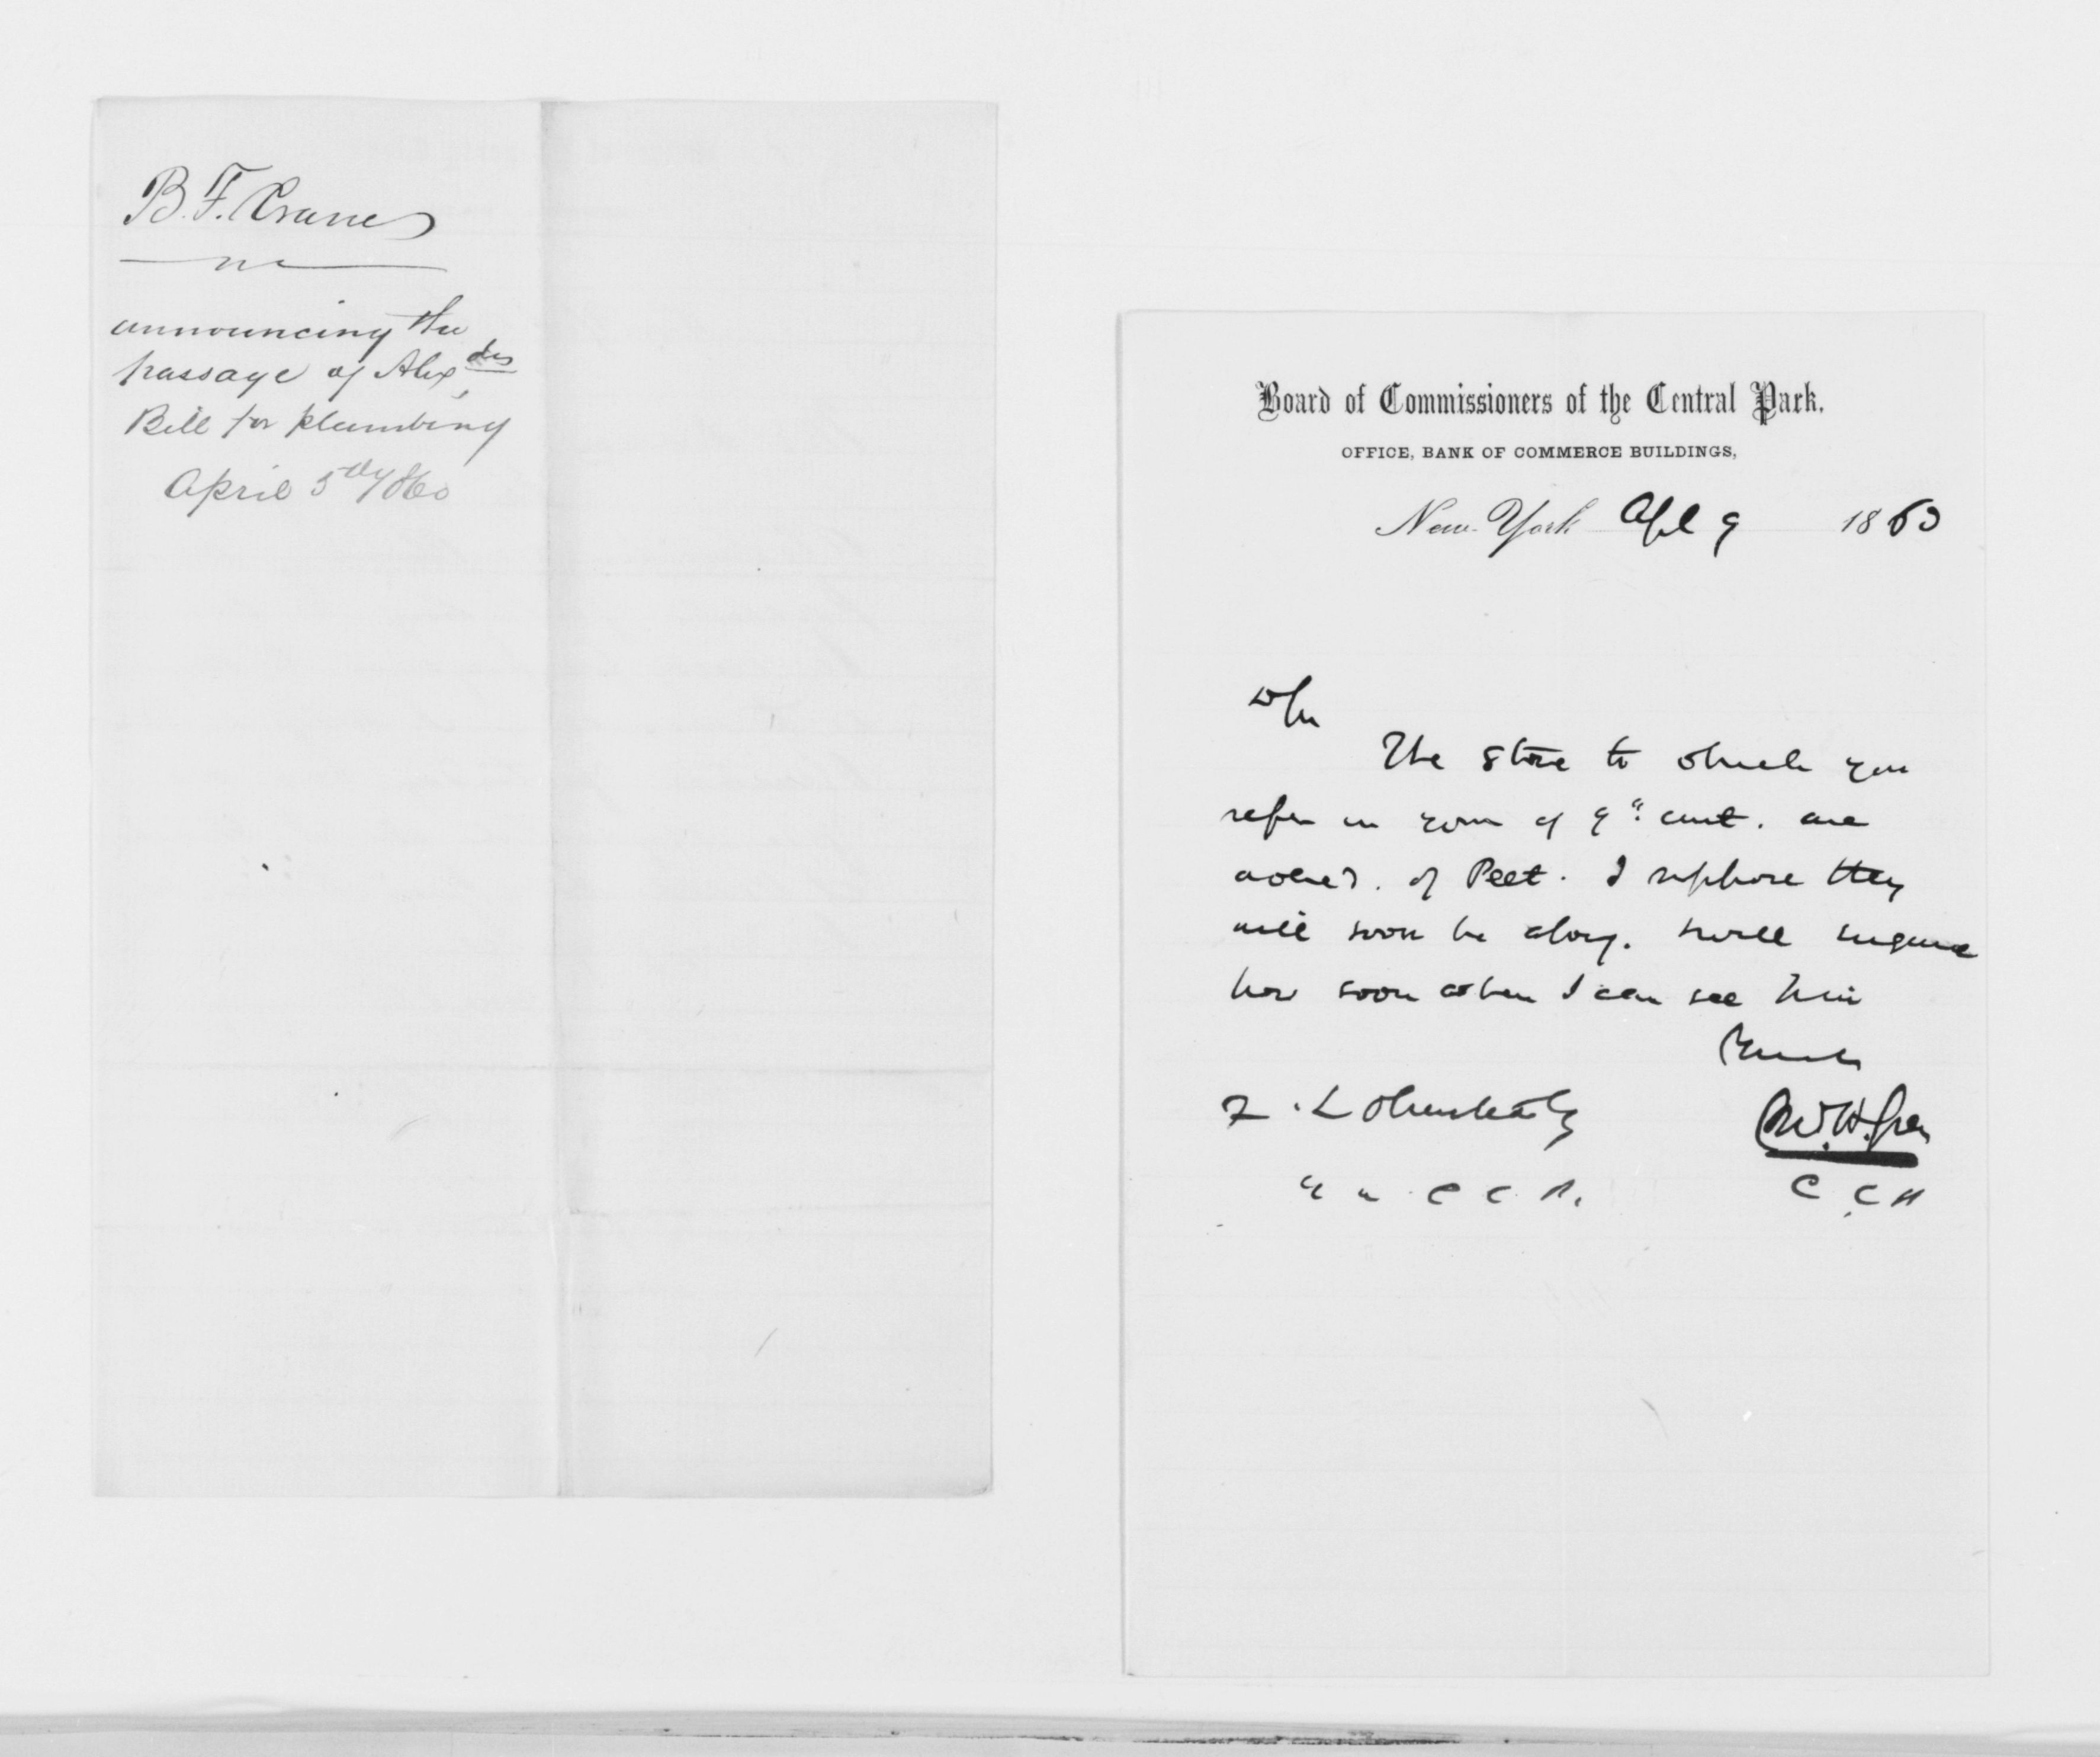 B. F. Crane
announcing the
passage of Alex des
Bill for plumbing
April 5th /60
Board of Commissioners of the Central Park.
OFFICE, BANK OF COMMERCE BUILDINGS,
New-York Apl 9 1860
D Sir
The stone to which you
refer in yours of 9" curt. are
of Peet. I suppose they
will soon be along. I will enquire
how soon when I can see him
Yours
F. L Olmsted Esq
A. H. Green
" " C C P.
C C P